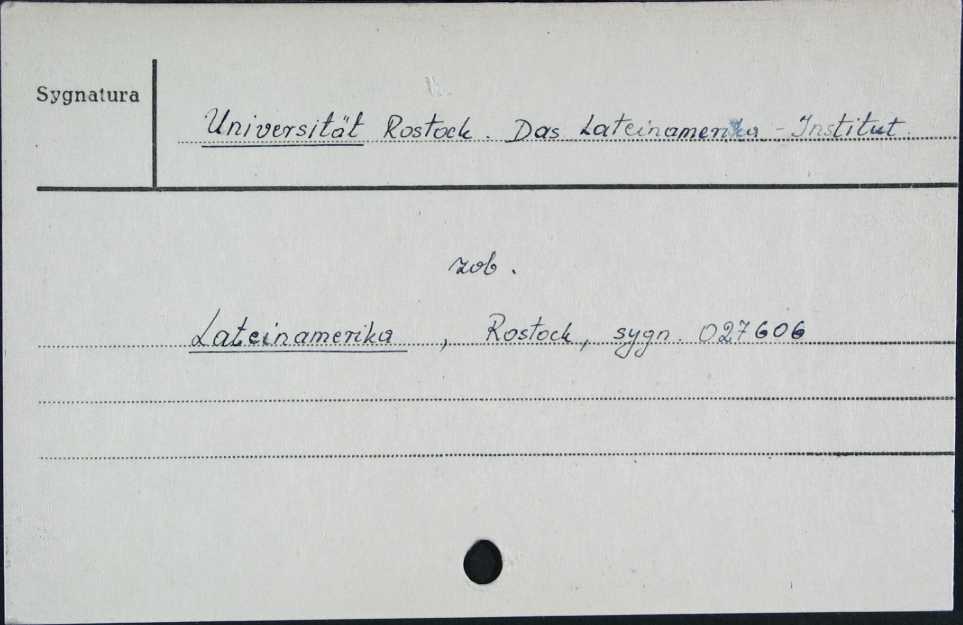 Sygnatura
Universität Rostock. Das Lateinamerika - Institut.
zob.
Lateinamerika, Rostock, sygn. 027606